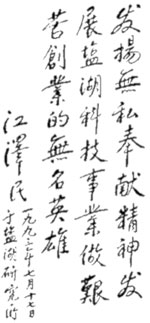 发揚無私奉献精神发
展盐湖科技事業做艱
苦創業的無名英雄
江澤民
一九九三年七月十七日
于盐湖研究所